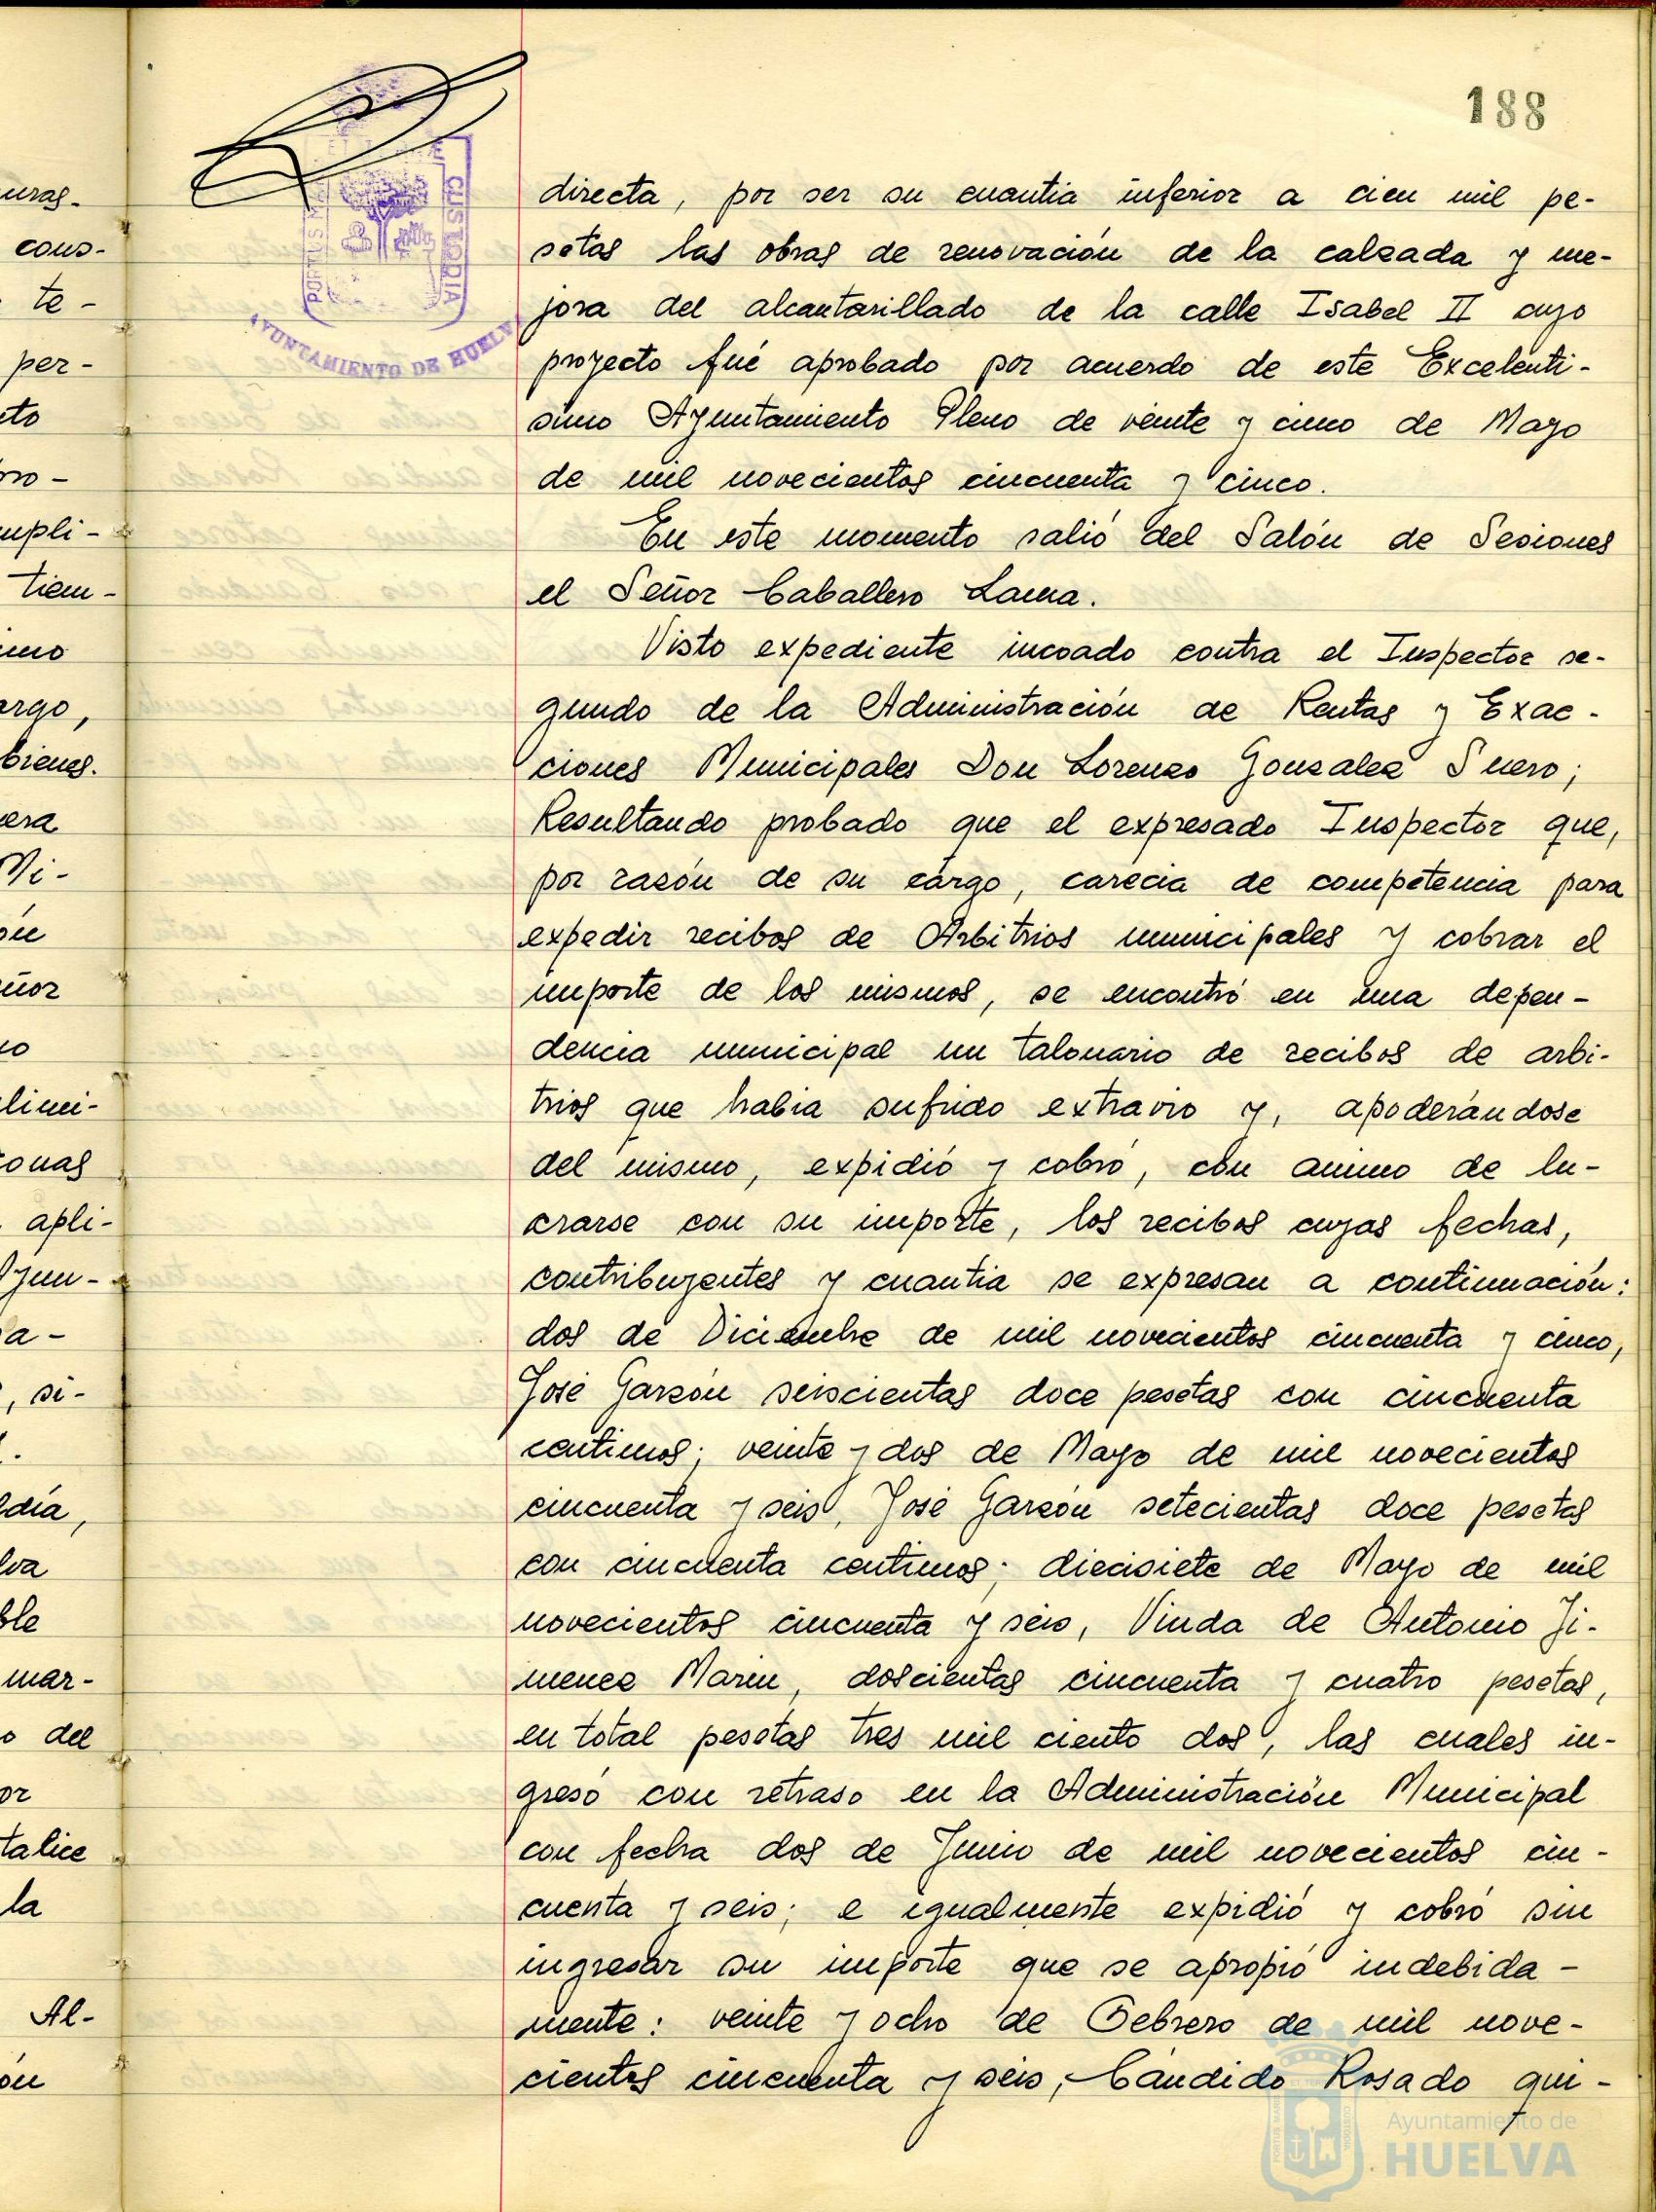 188
PORTUS MARIS ET TERRAE CUSTODIA
AYUNTAMIENTO DE HUELVA
directa, por ser su cuantia inferior a cien mil pe-
setas las obras de renovación de la calzada y me-
jora del alcantarillado de la calle Isabel II cuyo
proyecto fué aprobado por acuerdo de este Excelenti-
simo Ayuntamiento Pleno de veinte y cinco de Mayo
de mil novecientos cincuenta y cinco.
En este momento salió del Salón de Sesiones
el Señor Caballero Lama.
Visto expediente incoado contra el Inspector se-
gundo de la Administración de Rentas y Exac-
ciones Municipales Don Lorenzo Gonzalez Suero;
Resultando probado que el expresado Inspector que,
por razón de su cargo, carecia de competencia para
expedir recibos de Arbitrios municipales y cobrar el
importe de los mismos, se encontró en una depen-
dencia municipal un talonario de recibos de arbi-
trios que habia sufrido extravio y, apoderándose
del mismo, expidió y cobró, con animo de lu-
crarse con su importe, los recibos cuyas fechas,
contribuyentes y cuantia se expresan a continuación:
dos de Diciembre de mil novecientos cincuenta y cinco,
José Garzón seiscientas doce pesetas con cincuenta
centimos; veinte y dos de Mayo de mil novecientos
cincuenta y seis, José Garzón setecientas doce pesetas
con cincuenta centimos; diecisiete de Mayo de mil
novecientos cincuenta y seis, Viuda de Antonio Ji-
menez Marin, doscientas cincuenta y cuatro pesetas,
en total pesetas tres mil ciento dos, las cuales in-
gresó con retraso en la Administración Municipal
con fecha dos de Junio de mil novecientos cin-
cuenta y seis; e igualmente expidió y cobró sin
ingresar su importe que se apropió indebida-
mente: veinte y ocho de Febrero de mil nove-
cientos cincuenta y seis, Cándido Rosado qui-
Ayuntamiento de
HUELVA
uras.
cons-
te-
per-
mpli-
tiem-
argo,
bienes.
Mi-
apli-
, si-
mar-
o del
la
Al-